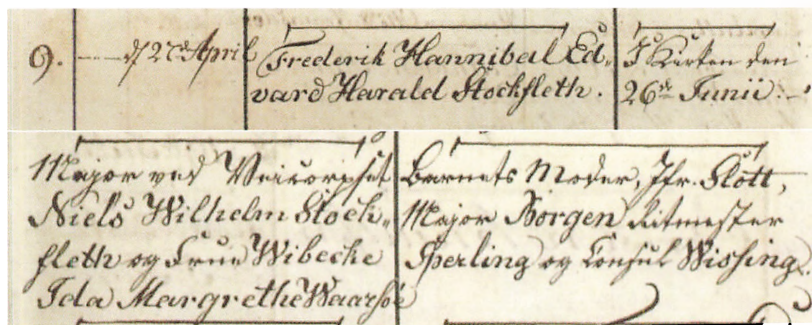 9. d 27de April Frederik Hannibal Ed- I Kirken den
vard Harald Stockfleth. 26de Junii.
Major ved Veicorpset
Niels Wilhelm Stock-
fleth og Frue Wibecke
Ida Margrethe Waarsøe
Barnets Moder, Jfr. Slott,
Major Borgen Ritmester
Sperling og Consul Wissing.